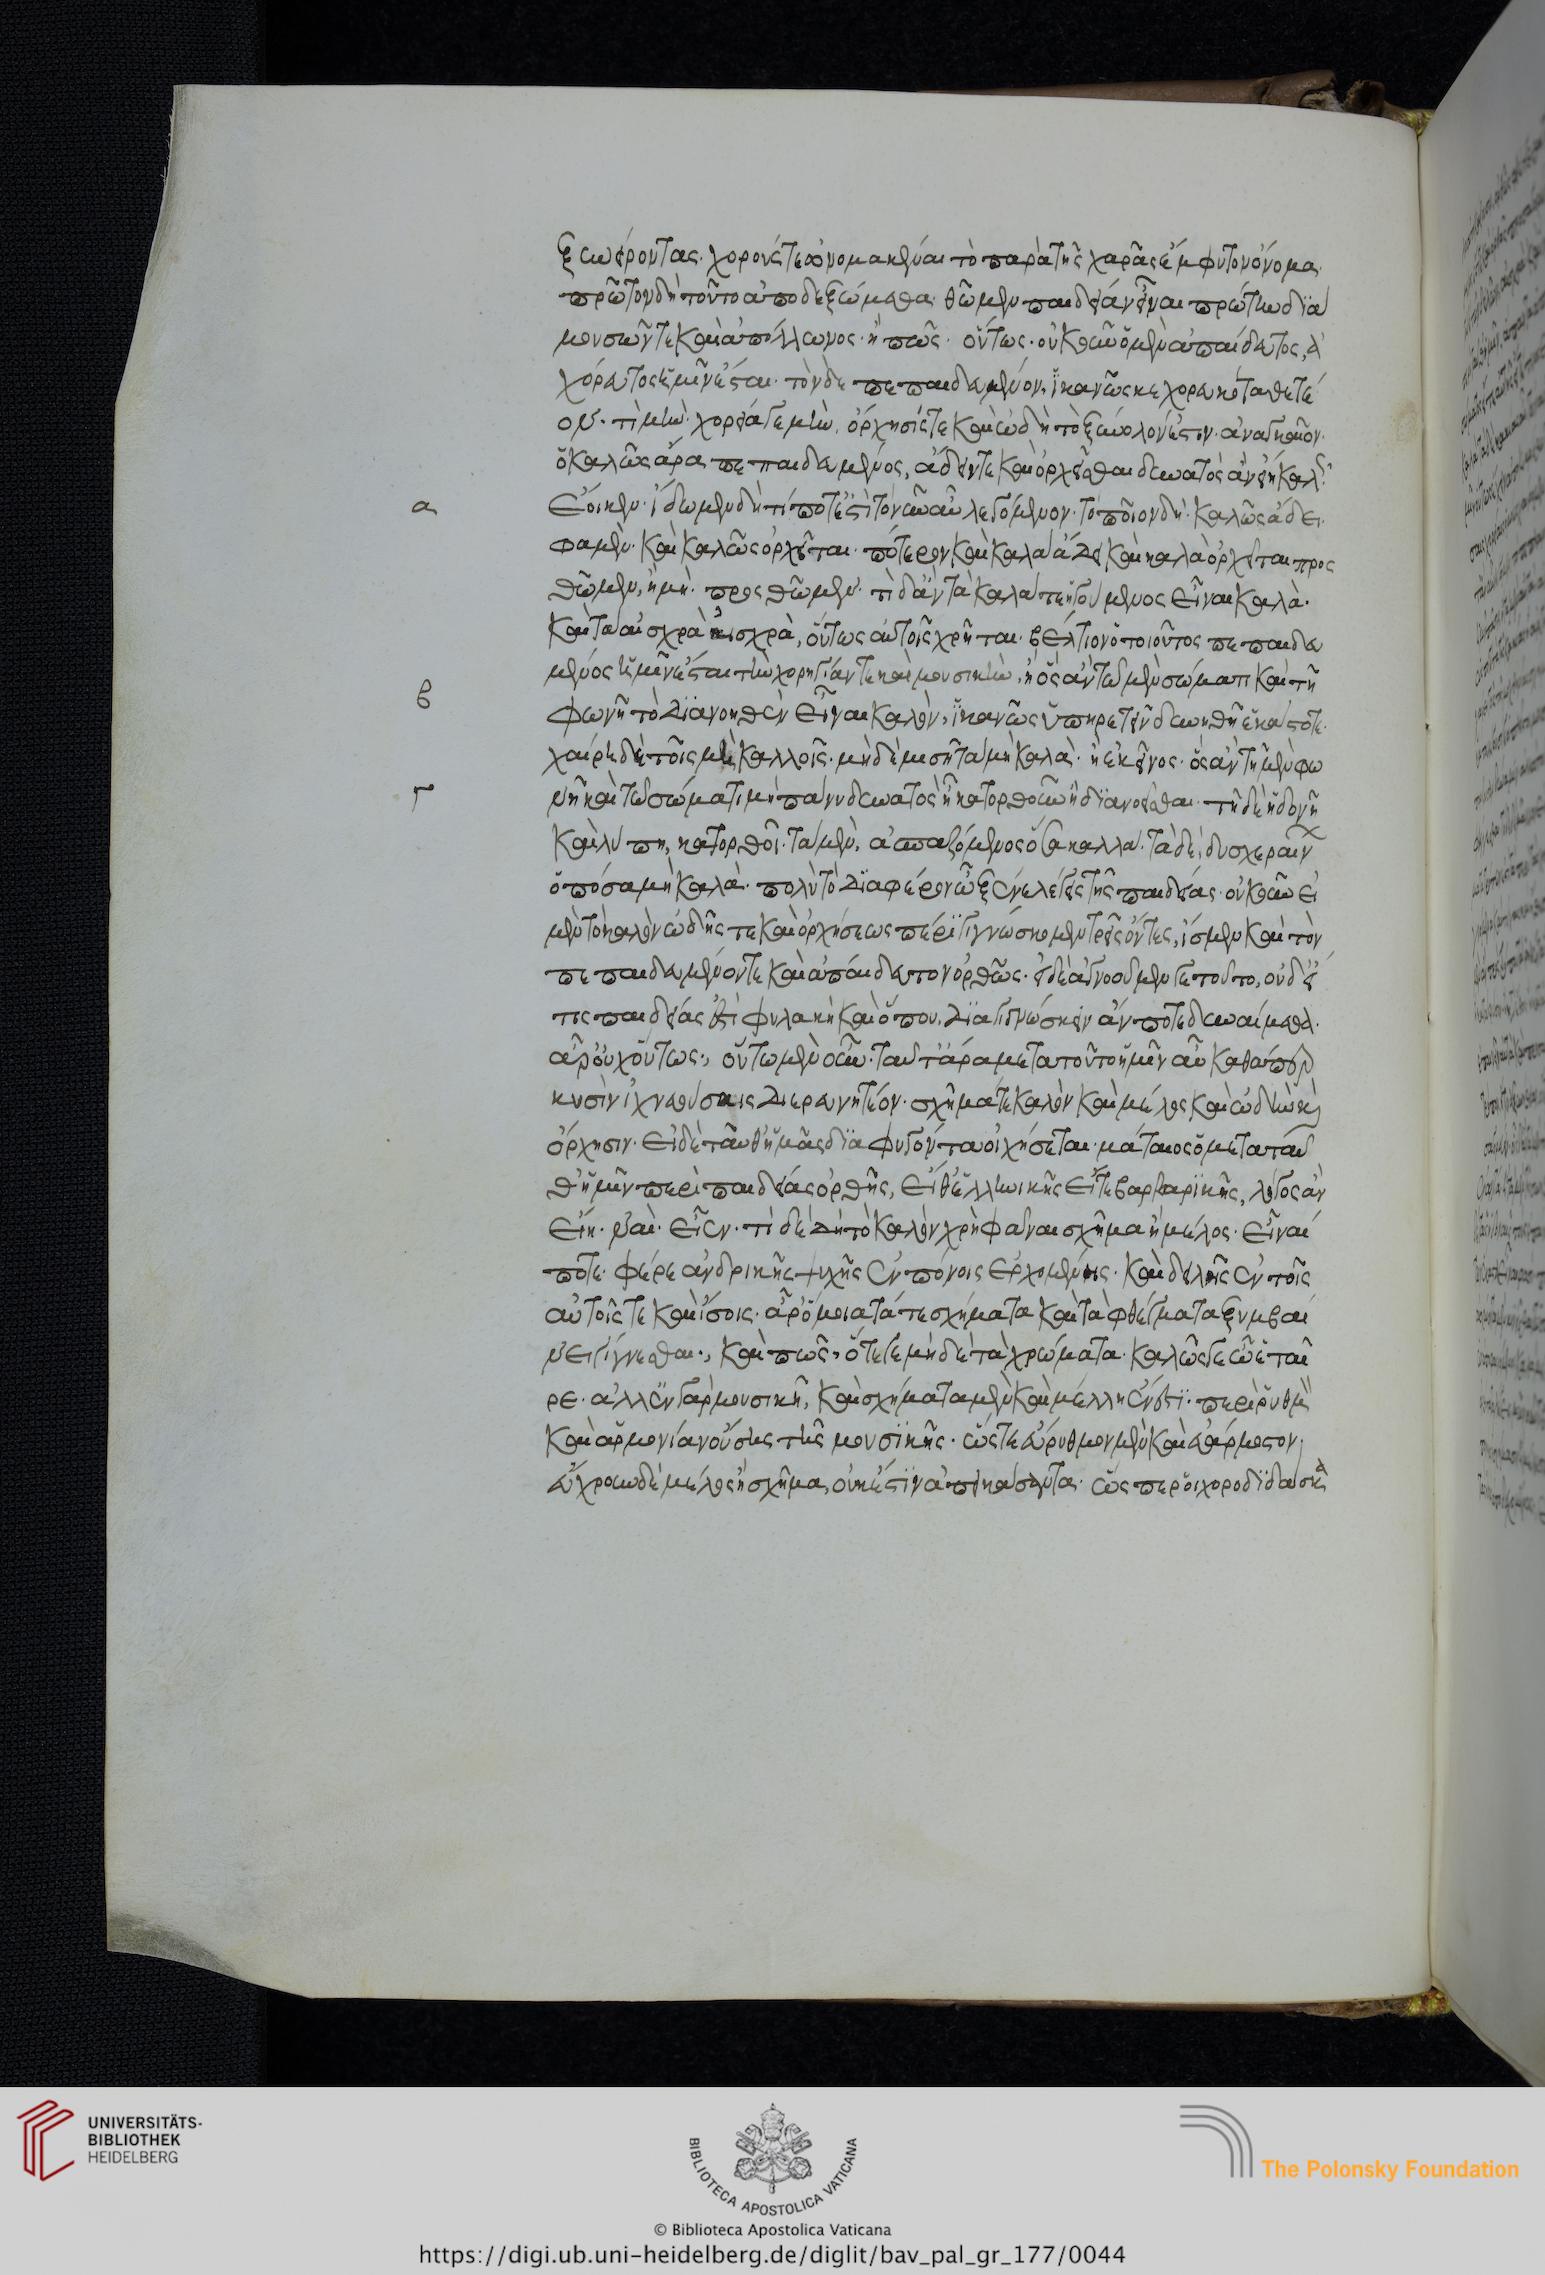 ξωείροντας. χορούς τε ὀνομακέναι τὸ παρὰ τῆς χαρᾶς ἔμφυτον ὄνομα.
πρῶτον δὴ τοῦτο ἀποδεξώμεθα. θῶμεν παιδείαν εἶναι πρώτην διὰ
μουσῶν τε καὶ ἀπόλλωνος. ἢ πῶς. οὕτως. οὐκοῦν ὁ μὲν ἀπαίδευτος, ἀ
χόρευτος ἡμῖν ἔσται. τὸν δὲ πεπαιδευμένον, ἱκανῶς κεχορευκότα θετέ
ον. τί μήν. χορεία γε μὴν, ὄρχησίς τε καὶ ὠδὴ τὸ ξύνολον ἐστιν. ἀναγκαῖον.
ὁ καλῶς ἄρα πεπαιδευμένος, ἄδειν τε καὶ ὀρχεῖσθαι δυνατὸς ἂν εἴη καλῶς.
α ἔοικεν. ἴδωμεν δὴ τί ποτέ ἐστι τὸ νῦν αὖ λεγόμενον. τὸ ποῖον δή. καλῶς ἄδει.
φαμὲν. καὶ καλῶς ὀρχεῖται. πότερον καὶ καλὰ ἄδει καὶ καλὰ ὀρχεῖται προς
θῶμεν, ἢ μή. προςθῶμεν. τί δ' ἂν τὰ καλά τε ἡγούμενος εἶναι καλὰ.
καὶ τὰ αἰσχρὰ αἰσχρὰ, οὕτως αὐτοῖς χρῆται. βέλτιον ὁ τοιοῦτος πεπαιδευ
μένος ἡμῖν ἔσται τὴν χορηγίαν τε καὶ μουσικὴν, ἢ ὃς ἂν τῷ μὲν σώματι καὶ τῇ
β φωνῇ τὸ διανοηθὲν εἶναι καλὸν, ἱκανῶς ὑπηρετεῖν δυνηθῇ ἑκάστοτε.
χαίρει δὲ τοῖς μὴ καλλοῖς. μὴ δὲ μισῇ τὰ μὴ καλὰ. ἢ ἐκεῖνος. ὃς ἂν τῇ μὲν φω
Γ νῇ καὶ τῷ σώματι μὴ πάνυ δυνατὸς ᾖ κατορθοῦν ἢ διανοεῖσθαι. τῇ δὲ ἡδονῇ
καὶ λύπη, κατορθοῖ. τὰ μὲν, ἀσπαζόμενος ὅσα καλλὰ. τὰ δὲ, δυσχεραίνων
ὁπόσα μὴ καλὰ. πολὺ τὸ διαφέρον ὦ ξένε λέγεις τῆς παιδείας. οὐκοῦν εἰ
μὲν τὸ καλὸν ὠδῆς τε καὶ ὀρχήσεως πέρι γιγνώσκομεν τρεῖς ὄντες, ἴσμεν καὶ τὸν
πεπαιδευμένον τε καὶ ἀπαίδευτον ὀρθῶς. εἰ δὲ ἀγνοοῦμεν γε τοῦτο, οὐδ' εἴ
τις παιδείας ἐστὶ φυλακὴ καὶ ὅπου, διαγιγνώσκειν ἄν ποτε δυναίμεθα.
ἆρ' οὐχ οὕτως., οὕτω μὲν οὖν. ταῦτ' ἄρα μετὰ τοῦτο ἡμῖν αὖ καθάπερ
κυσὶν ἰχνευούσαις διερευνητέον. σχῆμά τε καλὸν καὶ μέλος καὶ ὠδὴν καὶ
ὄρχησιν. εἰ δὲ ταῦθ' ἡμᾶς διαφυγόντα οἰχήσεται. μάταιος ὁ μετὰ ταῦ
θ' ἡμῖν περὶ παιδείας ὀρθῆς, εἴθ' ἑλληνικῆς εἴτε βαρβαρικῆς, λόγος ἂν
εἴη. ναὶ. εἶεν. τί δὲ δὴ τὸ καλὸν χρὴ φάναι σχῆμα ἢ μέλος. εἶναί
ποτε. φέρε ἀνδρικῆς ψυχῆς ἐν πόνοις ἐρχομένης. καὶ δειλῆς ἐν τοῖς
αὐτοῖς τε καὶ ἴσοις. ἆρ' ὅμοια τά τε σχήματα καὶ τὰ φθέγματα ξυμβαί
νει γίγνεσθαι., καὶ πῶς, ὅτε γε μὴ δὲ τὰ χρώματα. καλῶς γε ὦ ἑταῖ
ρε. ἀλλ' ἐν γὰρ μουσικῇ, καὶ σχήματα μὲν καὶ μέλλη ἔνεστι. περὶ ῥυθμὸν
καὶ ἁρμονίαν οὔσης τῆς μουσικῆς. ὥστε εὔρυθμον μὲν καὶ εὐάρμοστον.
εὔχρων δὲ μέλος ἢ σχῆμα, οὐκ ἔστιν ἀπεικάσαντα. ὥς περ οἱ χοροδιδάσκα
UNIVERSITÄTS-
BIBLIOTHEK
HEIDELBERG
BIBLIOTECA APOSTOLICA VATICANA
The Polonsky Foundation
© Biblioteca Apostolica Vaticana
https://digi.ub.uni-heidelberg.de/diglit/bav_pal_gr_177/0044